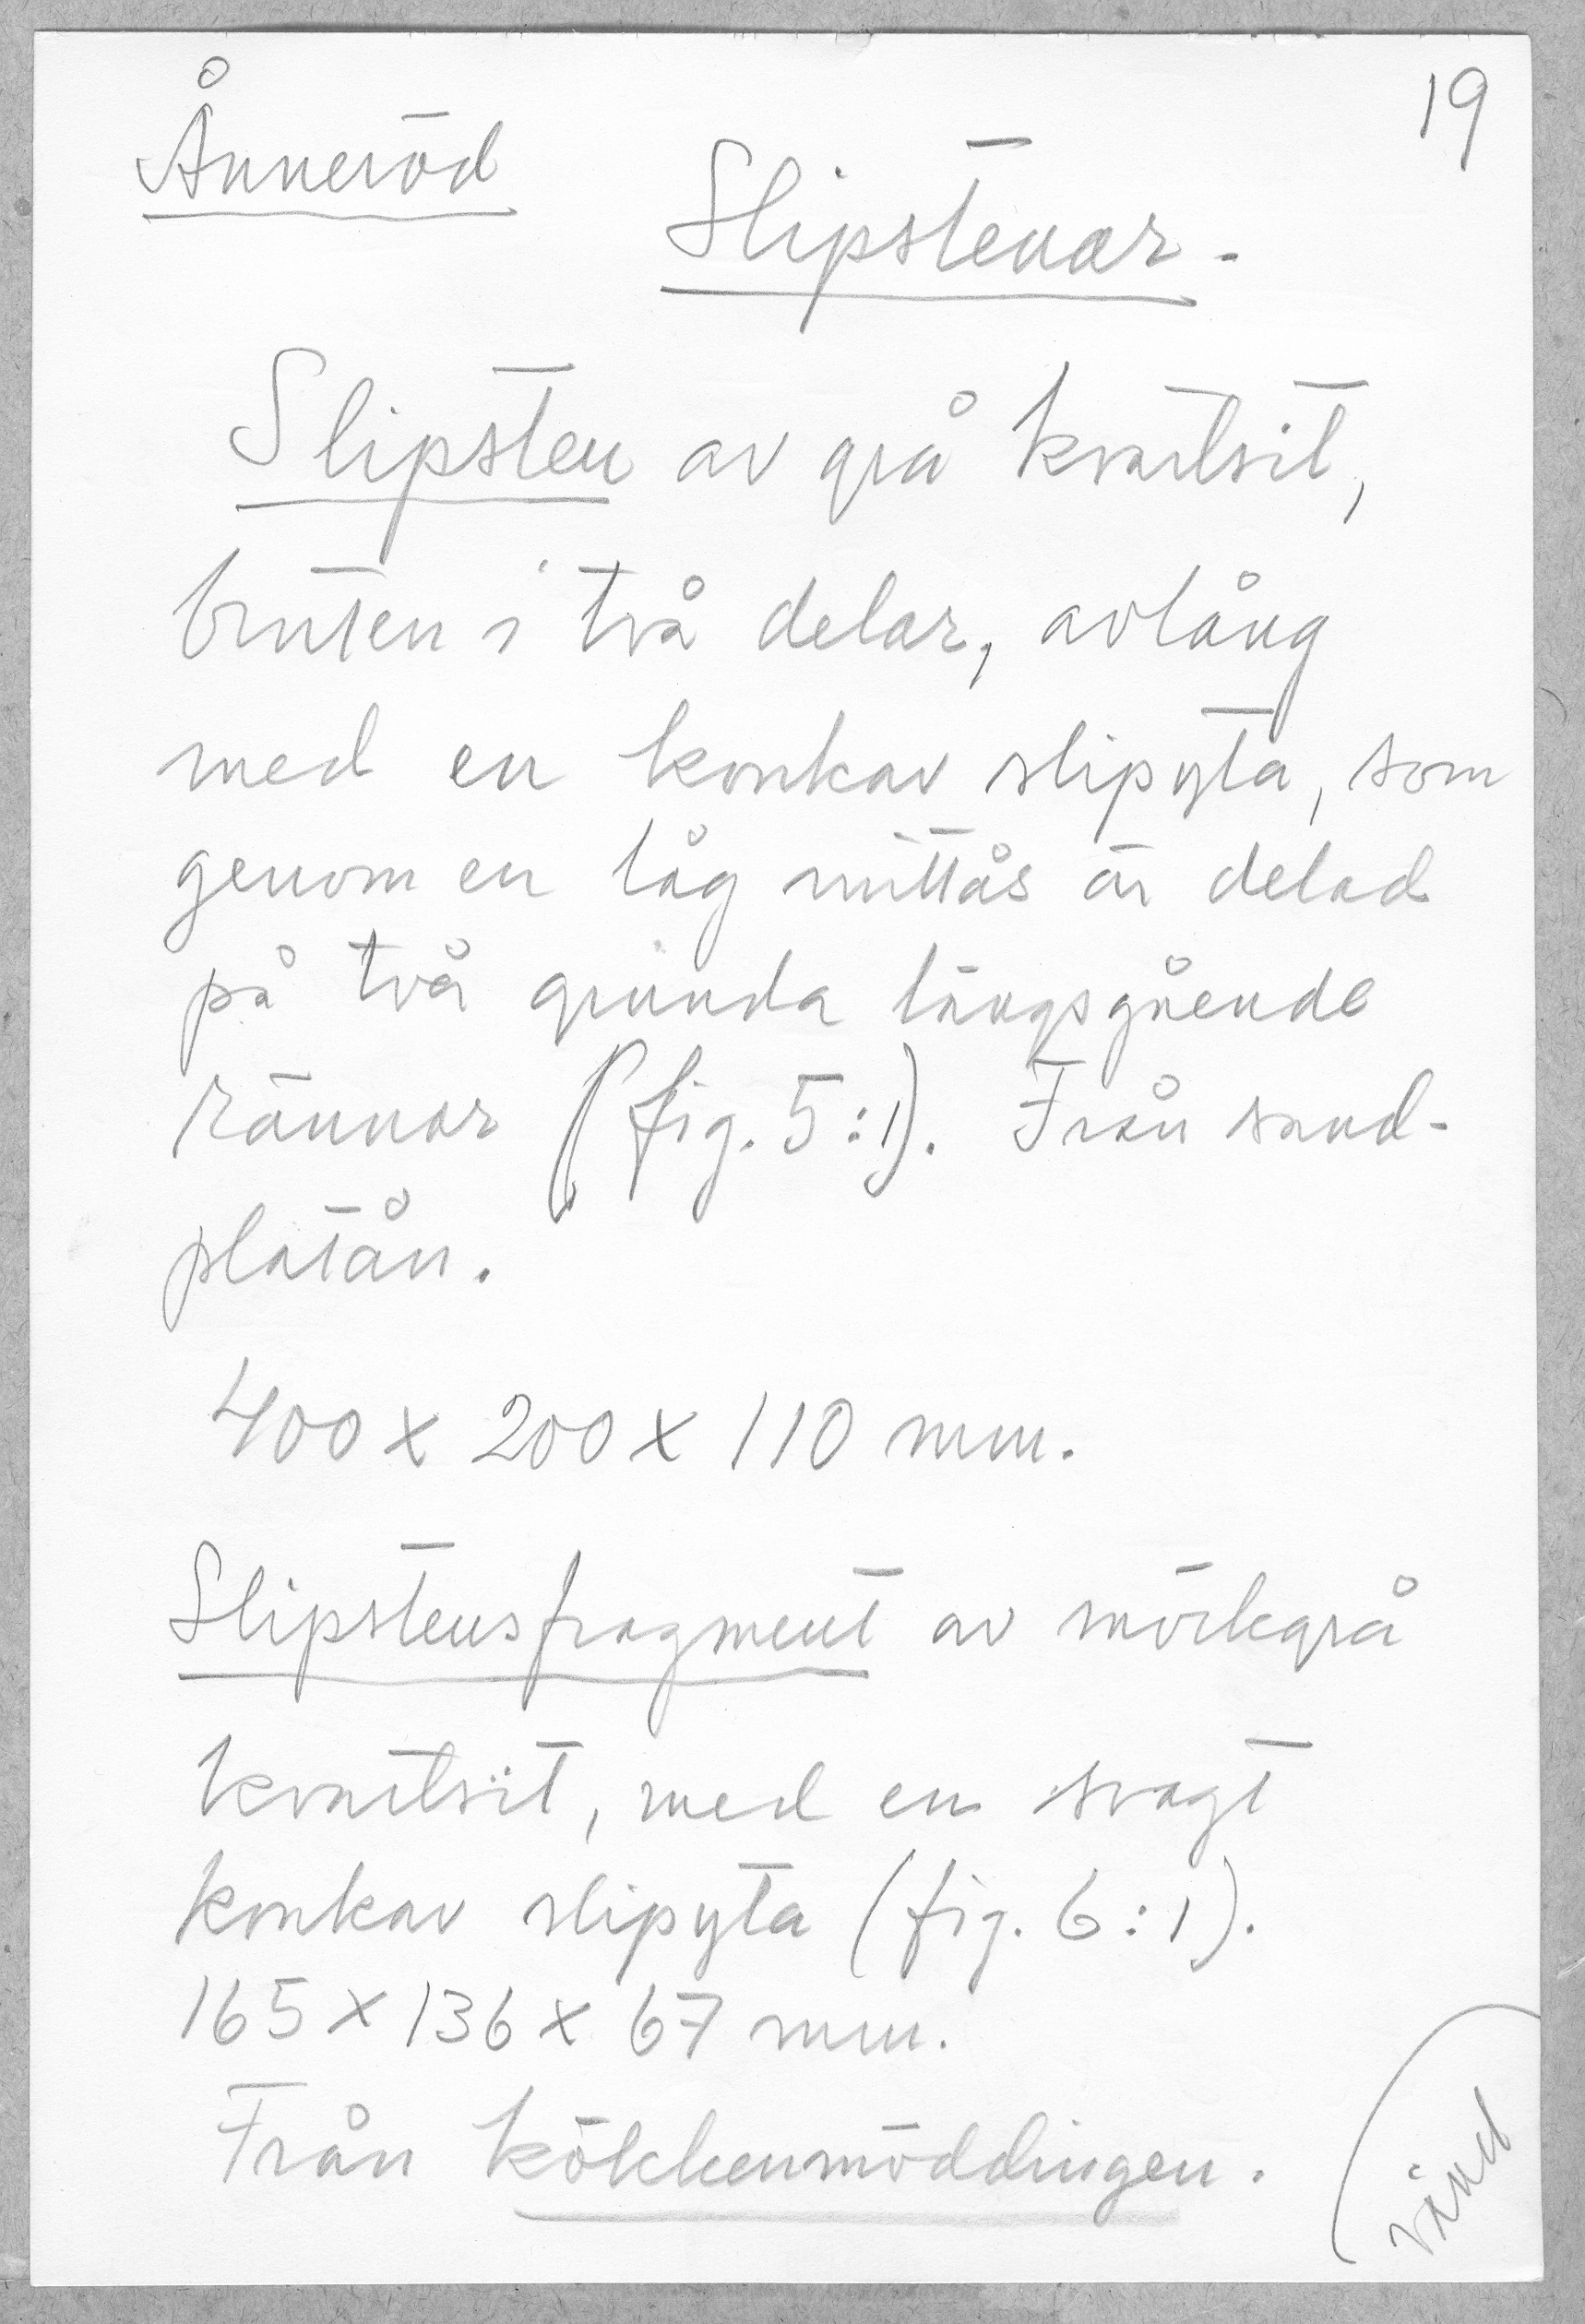 19
Ånneröd
Slipstenar.
Slipsten av grå kvartsit,
bruten i två delar, avlång
med en konkav slipyta, som
genom en låg mittås är delad
på två grunda längsgående
rännor (fig. 5:1). Från sand-
platån.
400 x 200 x 110 mm.
Slipstensfragment av mörkgrå
kvartsit, med en svagt
konkav slipyta (fig. 6:1).
165 x 136 x 67 mm.
Från kökkenmöddingen.
vänd